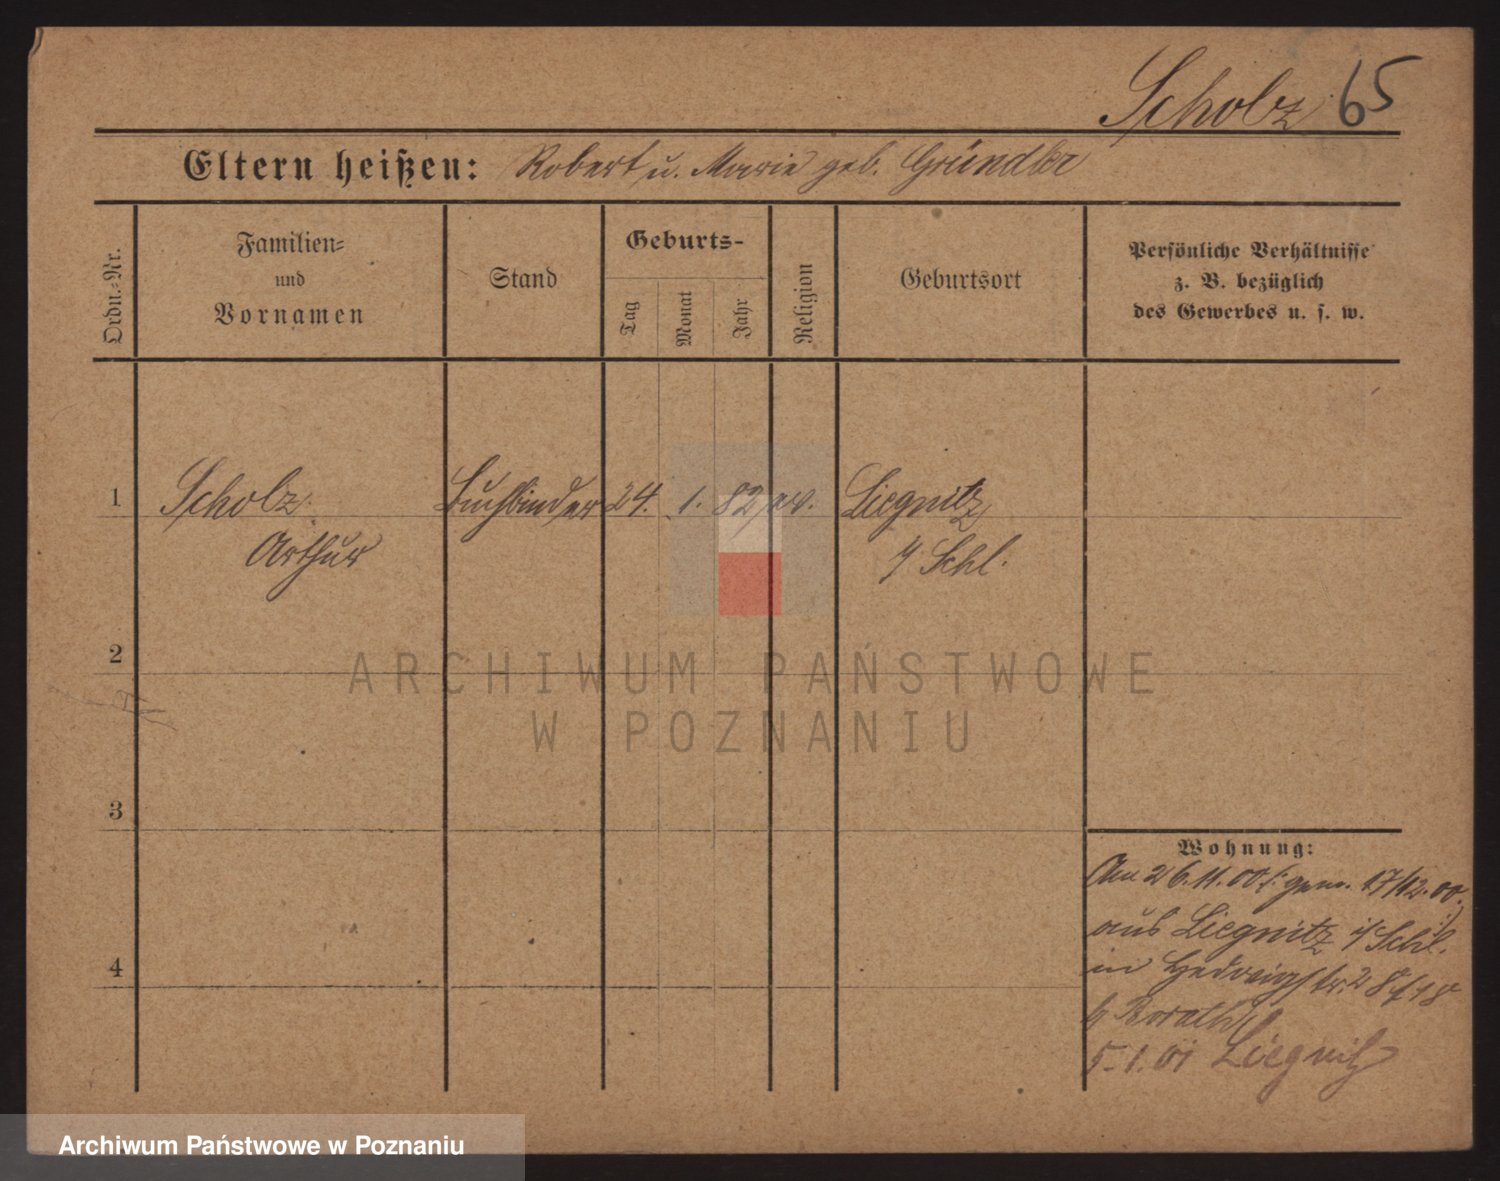 Scholz 65
Eltern heißen: Robert u. Marie geb. Gründler
Ordn.-Nr.
Familien-
und
Vornamen
Stand
Geburts-
Tag
Monat
Jahr
Religion
Geburtsort
Persönliche Verhältnisse
z. B. bezüglich
des Gewerbes u. s. w.
1 Scholz Buchbinder 24. 1. 82 ev. Liegnitz
Arthur i/ Schl.
2
ARCHIWUM PAŃSTWOWE
W POZNANIU
3
4
Wohnung:
Am 26.11.00 /: gem. 17/12.00. :/
aus Liegnitz i/ Schl.
in Hedwigstr. 28
b/ Borath
5.1.01 Liegnitz
Archiwum Państwowe w Poznaniu